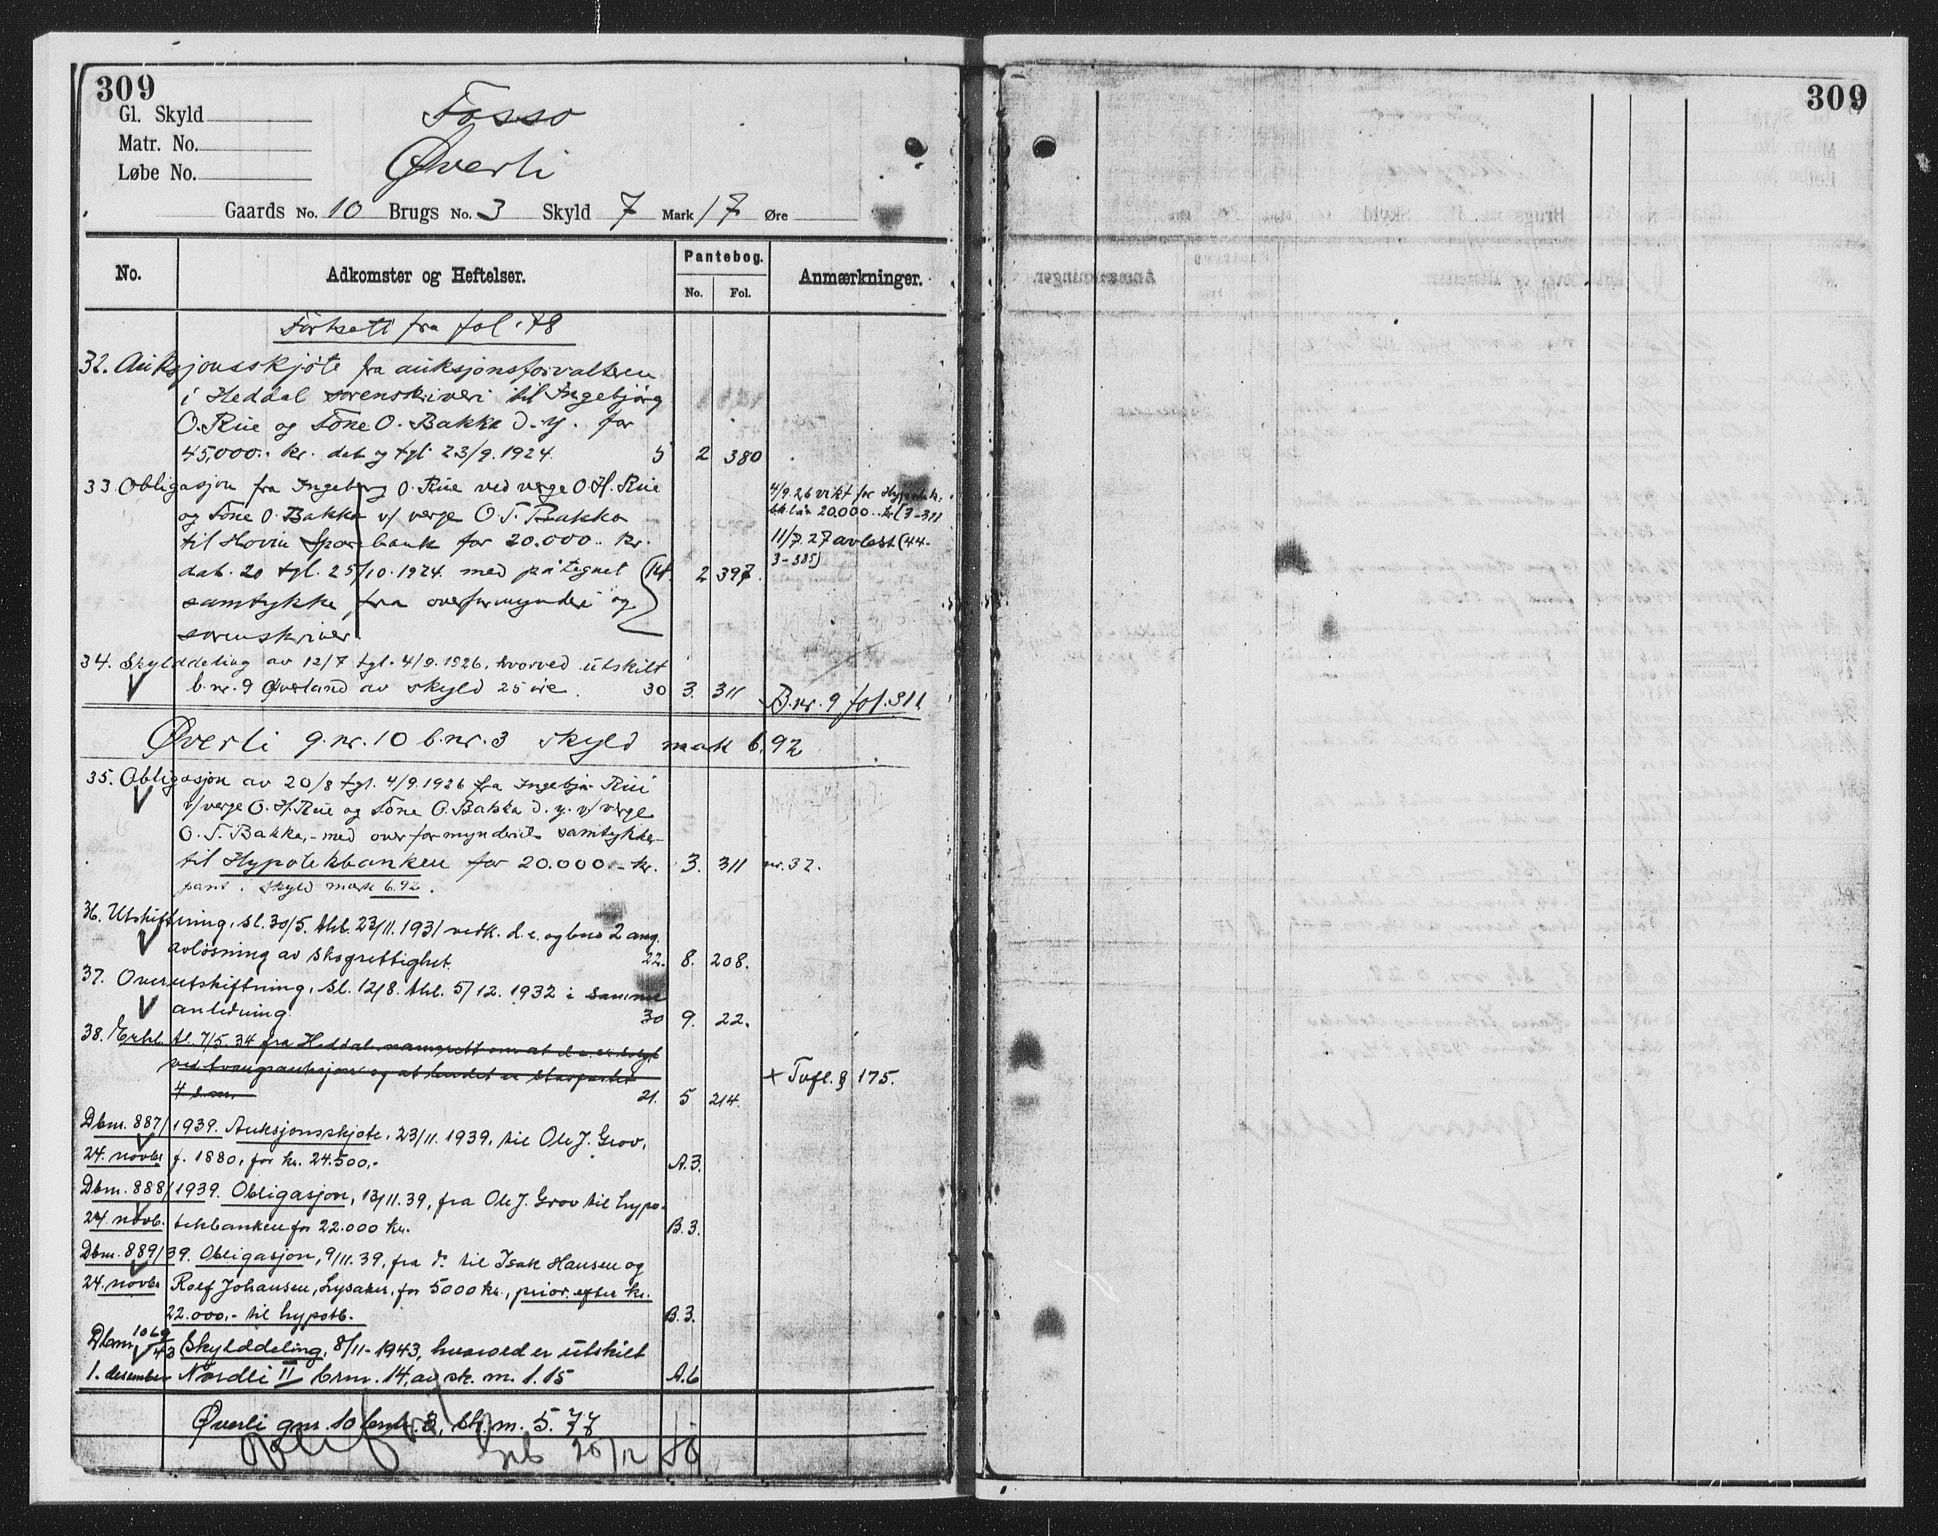 309
Gl. Skyld
Matr. No.
Løbe No.
Fosso
Øverli
Gaards No. 10 Brugs No. 3 Skyld 7 Mark 17 Øre
No. Adkomster og Heftelser. Pantebog. No. Fol. Anmærkninger.
Fortsatt fra fol. 48
32. Auksjonsskjøte fra auksjonsforvalteren
i Heddal sorenskriveri til Ingebjørg
O. Rue og Tone O. Bakka d.y. for
45.000.- kr. dat og tgl. 23/9.1924. 5 2 380
33. Obligasjon fra Ingeborg O. Rue ved verge O. H. Rue
og Tone O. Bakka v/ verge O. T. Bakka
til Hovin Sparebank for 20.000.. kr.
dat. 20 tgl. 25/10.1924. med påtegnet 14. 2 397.
samtykke fra overformynderi og
sorenskriver
4/9.26 vikt for Hypotek.
bk.lån 20.000.. kr (3-311
11/7.27 avlest (44-
3-385)
34. Skylddeling av 12/7 tgl. 4/9.1926, hvorved utskilt
b.nr. 9 Øverland av skyld 25 øre. 30 3. 311 B.nr. 9 fol. 311
Øverli g.nr. 10 b.nr. 3 skyld mark 6.92
35. Obligasjon av 20/8 tgl. 4/9.1926 fra Ingebjør Rue
v/verge O. H. Rue og Tone O. Bakka d.y. v/ verge
O. T. Bakka, - med overformynderiets samtykke -
til Hypotekbanken for 20.000.- kr. 3. 311 nr. 32.
pant. skyld mark 6.92.
36. Utskiftning, sl. 30/5. thl. 23/11.1931 vedk. d.e. og bno 2 ang.
avløsning av skogrettighet. 22. 8. 208.
37. Overutskiftning, sl. 12/8. thl. 5/12.1932 i samme
anledning. 30 9. 22.
38. Erkl. tl. 7/5.34 fra Heddal namsrett om at d.e. er solgt
ved tvangsauksjon og at budet er stadfestet
4 s.m. 21. 5 214. + Tvfl. § 175.
Dbnr. 887/1939. Auksjonsskjøte, 23/11.1939, til Ole J. Grov,
24. novbr f. 1880, for kr. 24.500,- A.3.
Dbnr. 888/1939. Obligasjon, 13/11.39, fra Ole J. Grov til hypo-
24. novb. tekbanken for 22.000 kr. B.3.
Dbnr. 889/39. Obligasjon, 9/11.39, fra d. til Isak Hansen og
24. novbr Rolf Johansen, Lysaker, for 5000 kr., prior. efter kr.
22.000,- til hypotb. B.3.
Dbnr 1069/43 Skylddeling, 8/11-1943, hvorved er utskilt
1. desember Nordli II brnr. 14, av sk. m. 1.15 A.6
Øverli gnr. 10 bnr. 3, sk. m. 5.77
309